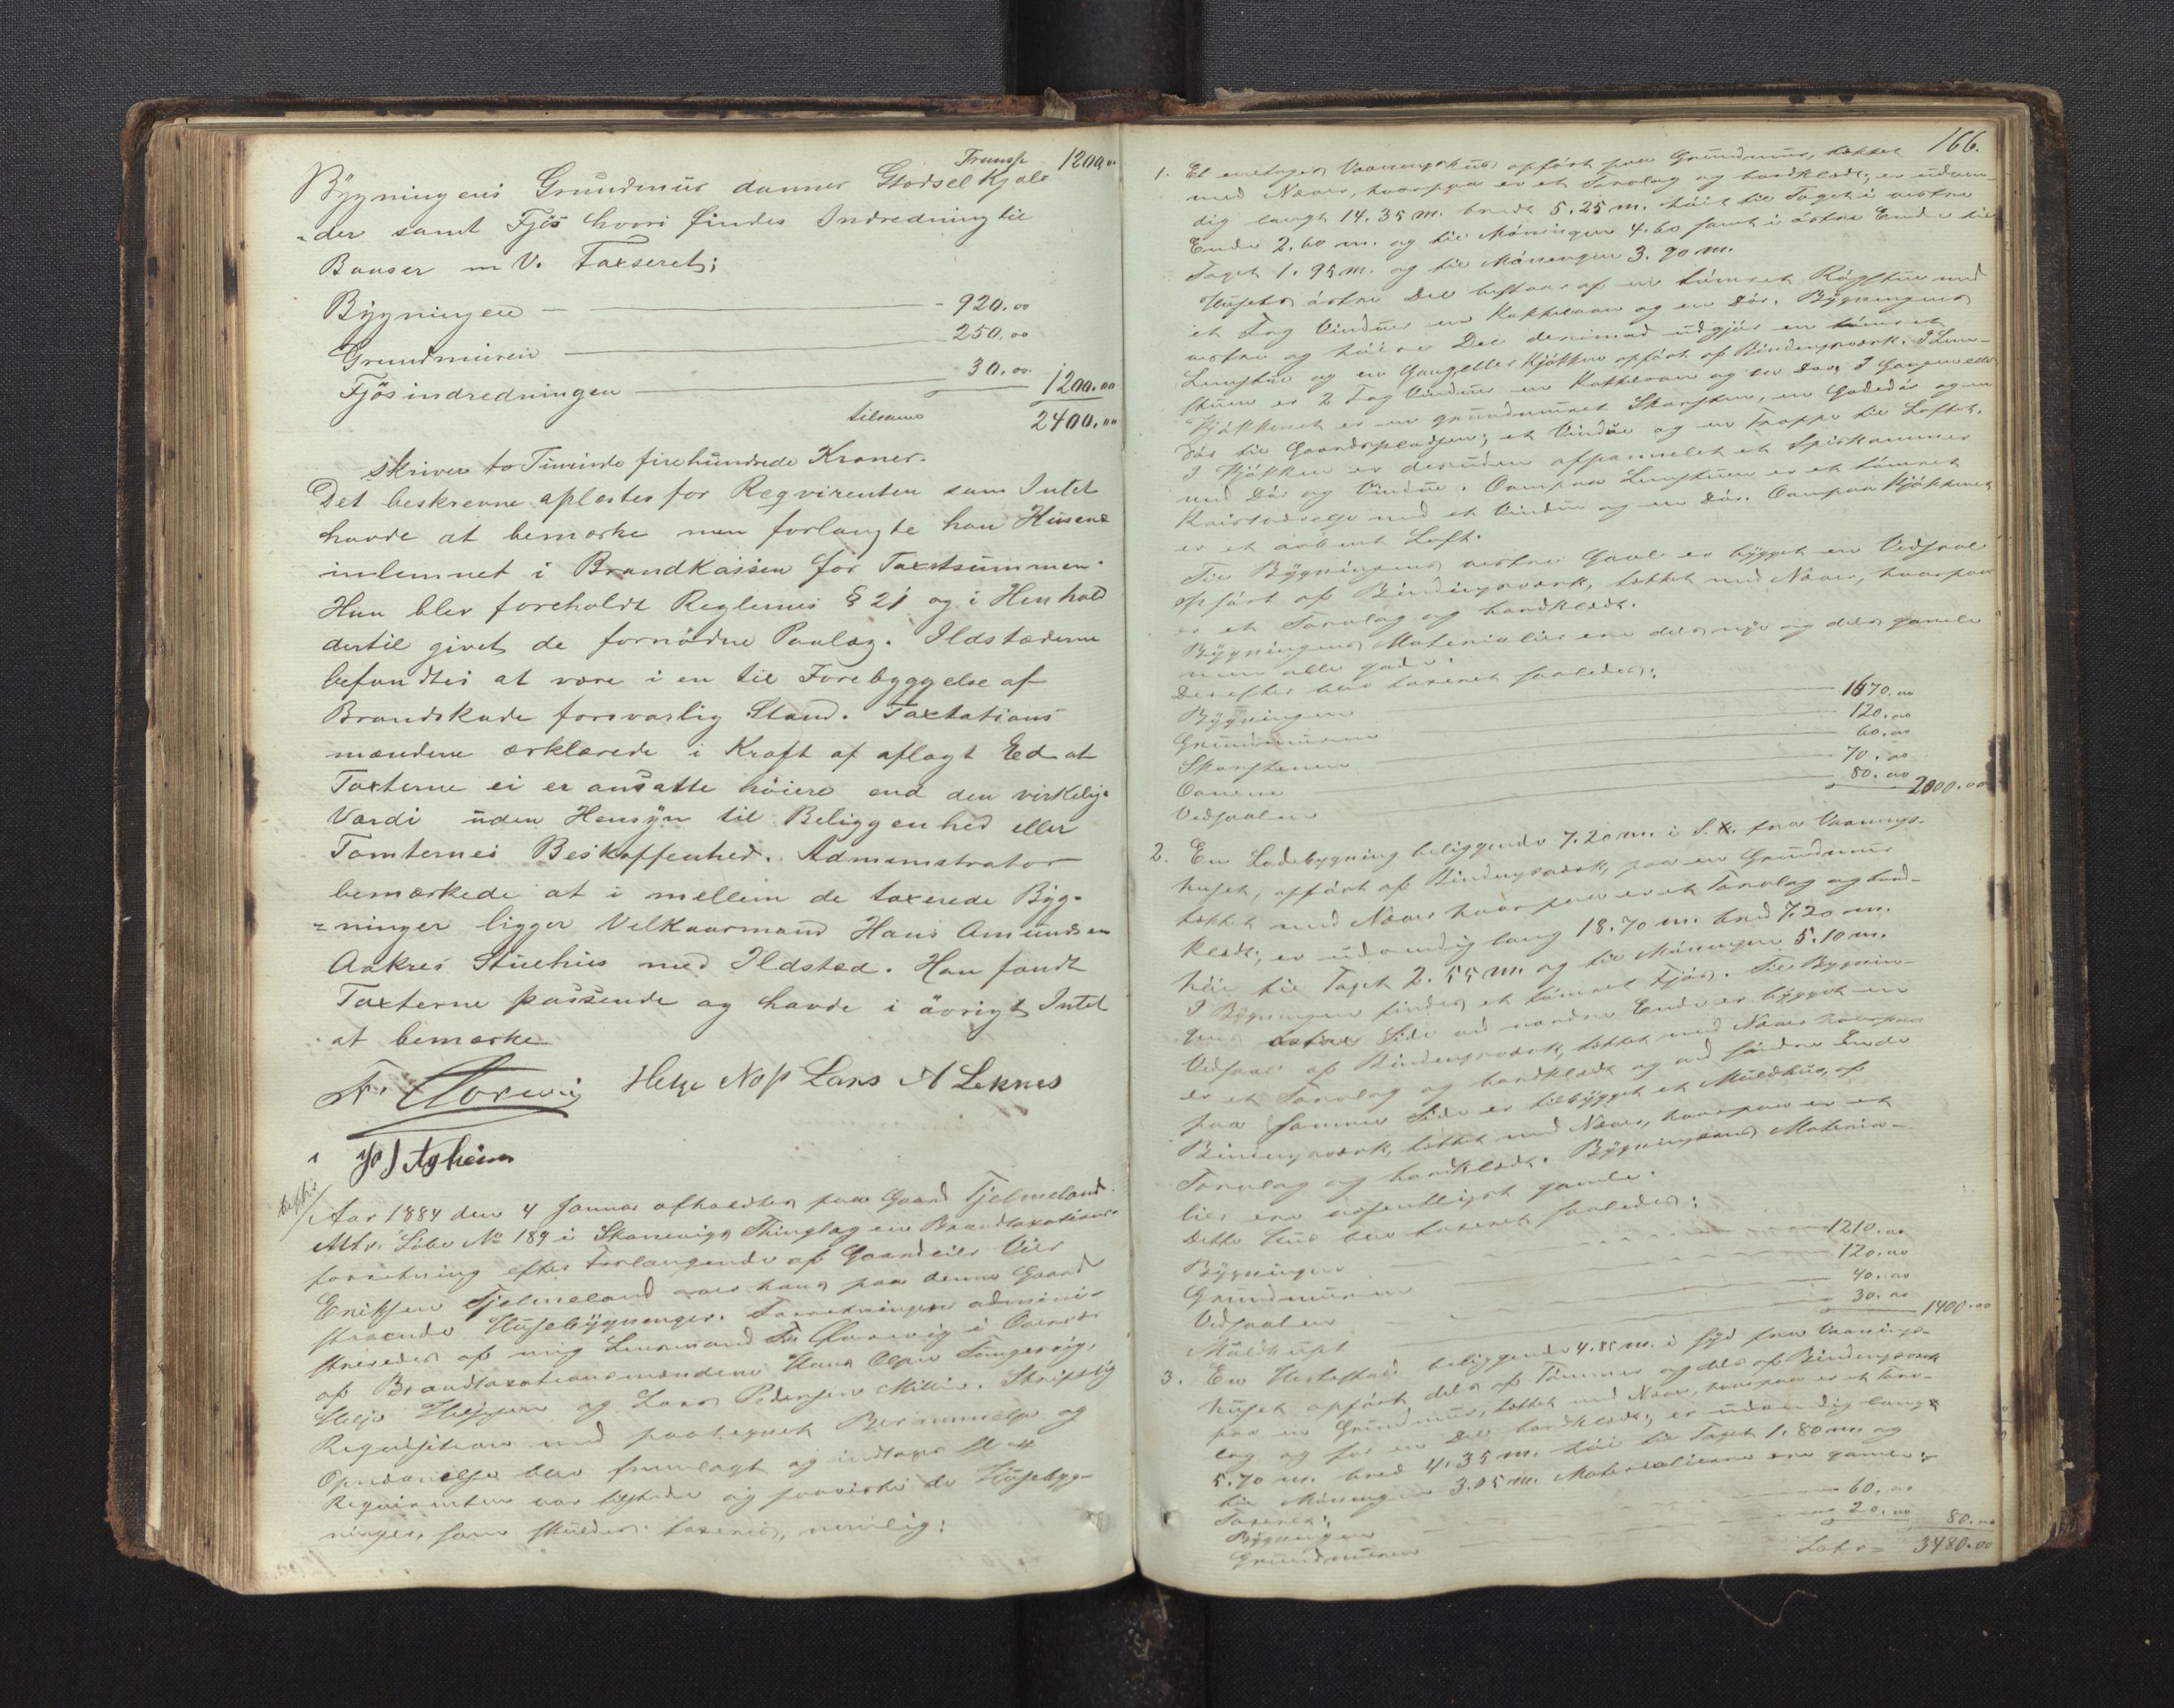 Transp 1200.00
Bygningens Grundmur danner Gjødselkjæl-
der samt Fjøs hvori findes Indredning til
Baaser m V. Taxseret;
Bygningen — 920.00
Grundmuren — 250.00
Fjösindredningen — 30.00 1200.00
tilsams 2400.00
skriver to Tusinde firehundrede Kroner.
Det beskrevne oplæstes for Reqvirenten som Intet
havde at bemærke men forlangte han Husene
indlemmet i Brandkassen for Taxtsummen.
Han blev foreholdt Reglernes § 21 og i Henhold
dertil givet de fornödne Paalæg. Ildstæderne
befandtes at være i en til Forebyggelse af
Brandskade forsvarlig Stand. Taxtations
mændene erklærede i Kraft af aflagt Eed at
Taxterne ei er ansatte höiere end den virkelige
Værdi uden Hensyn til Beliggenhed eller
Tomternes Beskaffenhed. Administrator
bemærkede at i mellem de taxerede Byg-
ninger ligger Velkaarmand Hans Amundsen
Aakres Stuehus med Ildsted. Han fandt
Taxterne passende og havde i övrigt Intet
at bemærke
Fr. Clorevig Helge Næss Lars A Leknes
Aar 1884 den 4 Januar afholdtes paa Gaard Tjelmeland
Mtr. Löbe No 189 i Skaanevigs Thinglag en Brandtaxations-
forretning efter Forlangende af Gaardeier Vier
Eriksen Tjelmeland over hans paa denne Gaard
staaende Husebygninger. Forretningen admini-
streredes af mig Lensmand Fr. Clorevig i Overvær
af Brandtaxationsmændene Hans Olsen Tungesvig,
Helje Heljesen og Lars Pedersen Milja. Skriftlig
Reqvisition med paategnet Berammelse og
Opnævnelse blev fremlagt og indtages
Reqvirenten var tilstede og paaviste de Husebyg-
ninger, som skulde taxeres, nemlig:
166.
1. Et enetages Vaaningshus opført paa Grundmur, tækket
med Næver, hvorpaa er et Torvlag og bordklædt; er udven-
dig langt 14.35 m. bredt 5.25 m. høit til Taget i vestre
Ende 2.60 m. og til Møningen 4.60 samt i østre Ende til
Taget 1.95 m. og til Møningen 3.90 m.
Husets østre Del bestaar af en tømret Røgstue med
et Fag Vinduer en Kakkelovn og en Dør. Bygningens
vestre og høiere Del derimod udgjør en tømret
Lemstue og en Gang eller Kjøkken opført af Bindingsværk. I Lem-
stuen er 2 Fag Vinduer en Kakkelovn og en Dør, I Gangen eller
Kjøkkenet er en grundmuret Skorsten, en Gadedør og en
Dør til Gaardspladsen; et Vindue og en Trappe til Loftet.
I Kjøkken er desuden afpannelet et Spiskammer
med Dør og Vindue. Ovenpaa Lemstuen er et tømret
Kvistværelse med et Vindue og en Dør. Ovenpaa Kjøkkenet
er et aabent Loft.
Til Bygningens vestre Gavl er bygget en Vedsval
opført af Bindingsværk, tækket med Næver, hvorpaa
er et Torvlag og bordklædt.
Bygningens Materialier ere dels nye og dels gamle
men alle gode.
Derefter blev taxeret saaledes:
Bygningen 1670.00
Grundmuren 120.00
Skorstenen 60.00
Ovnene 70.00
Vedsvalen 80.00 2000.00
2. En Ladebygning beliggende 7.20 m. i S. fra Vaanings-
huset, opført af Bindingsværk, paa en Grundmur
tækket med Næver hvorpaa er et Torvlag og bord-
klædt; er udvendig lang 18.70 m. bred 7.20 m.
høi til Taget 2.55 m. og til Møningen 5.10 m.
I Bygningen findes et tømret Fjøs. Til Bygnin-
gens østre Side ved nordre Ende er bygget en
Vedsval af Bindingsværk, tækket med Næver hvorpaa
er et Torvlag og bordklædt og ved søndre Ende
paa samme Side er tilbygget et Muldhus, af
Bindingsværk, tækket med Næver, hvorpaa er et
Torvlag og bordklædt. Bygningens Materia-
lier ere væsentligst gamle.
Dette Hus blev taxeret saaledes:
Bygningen 1210.00
Grundmuren 120.00
Vedsvalen 40.00
Muldhuset 30.00 1400.00
3. En Hestestald beliggende 4.85 m. i Syd fra Vaanings-
huset opført dels af Tømmer og dels af Bindingsværk
paa en Grundmur, tækket med Næver, hvorpaa er et Torv-
lag og for en Del bordklædt; er udvendig lang
5.70 m. bred 4.35 m. høi til Taget 1.80 m. og
til Møningen 3.05 m. Materialierne ere gamle;
Taxeret:
Bygningen 60.00
Grundmuren 20.00 80.00
Lateris 3480.00